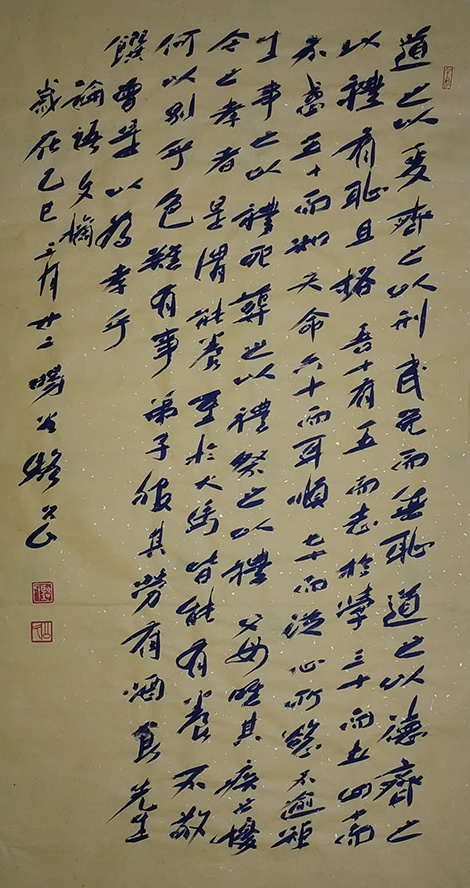 道之以政齊之以刑民免而無恥道之以德齊之
以禮有恥且格吾十有五而志於學三十而立四十而
不惑五十而知天命六十而耳順七十而從心所慾不逾矩
生事之以禮死葬之以禮祭之以禮父母唯其疾之憂
今之孝者是謂能養至於犬馬皆能有養不敬
何以別乎色難有事弟子服其勞有酒食先生
饌曾是以為孝乎
論語文摘
歲在乙巳三月廿二